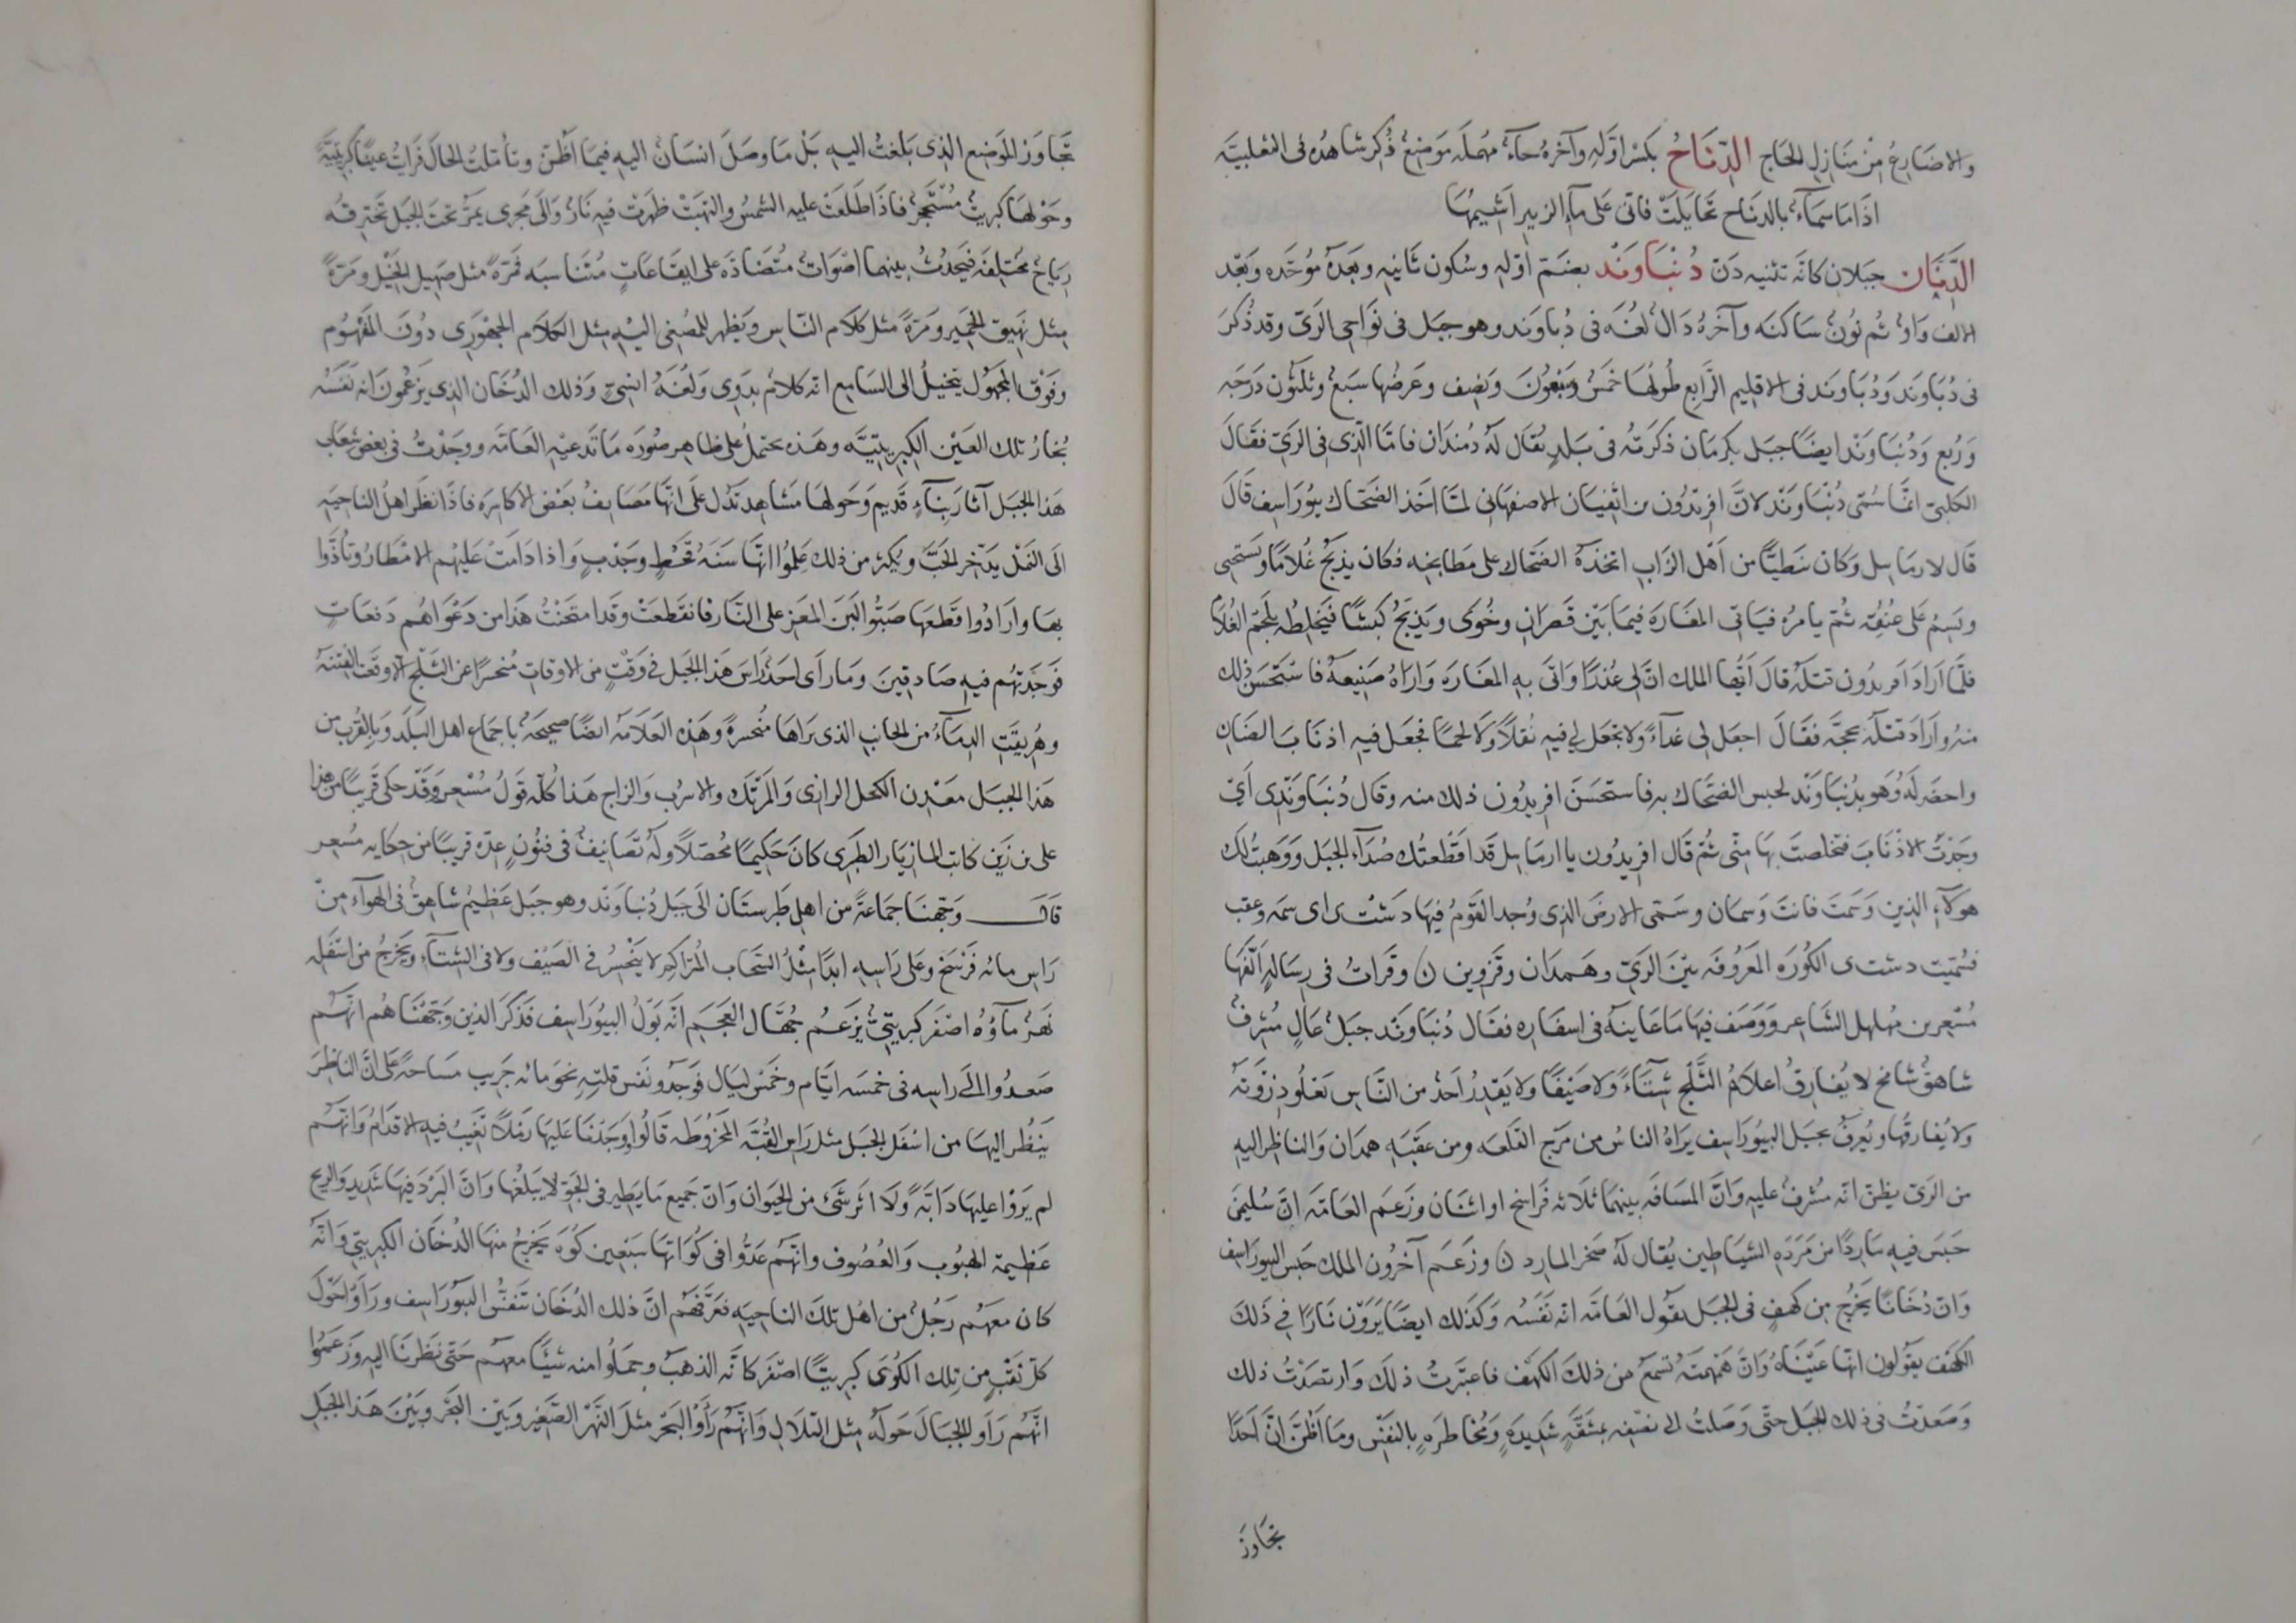 والاضارع من منازل الحاج الدِّنَاحُ بكسر اوّله وآخره حاءٌ مهملَه موضعٌ ذُكر شاهدُه فى الثعلبيَّه
اذا ما سماءٌ بالدناح تخايلتْ فانى على ماء الزبير اشيمُها
الدَّنَّان جبلان كانّه تثنيه دَنّ دُنْبَاوَنْد بضمّ اوّله وسكون ثانيه وبعده موحّده وبعد
الالف واوٌ ثم نونٌ ساكنه وآخره دالٌ لغُه فى دُباوند وهو جبَل فى نواحى الرىّ وقد ذُكرَ
فى دُبَاوَند وَدُنبَاوَند فى الاقليم الرَّابع طُولُها خمسٌ وسَبْعُونَ ونصف وعرضُها سَبعٌ وثلثون درَجَه
وَرُبع وَدُنبَاوَنْد ايضًا جبَل بكرمان ذكرتُه فى بَلدٍ يُقال لهُ دمندَان فامّا الّذى فى الرىّ فقالَ
الكلبىّ انّما سُمّى دُنْبَاوَنْد لانَّ افريدُون بن اثفيَان الاصفهَانى لمّا اخذ الضحّاك بيُورَاسِف قال
قَال لارمَاييل وكان نبَطيًّا من اَهْل الزَاب اتخذهُ الضحّاك على مطابخه فكان يذبحُ غُلامًا ويَستحيى
ويَسِمُ على عُنُقِه ثمّ يامرهُ فياتى المغارَه فيمَا بَيْن قصران وخُوَى ويَذبحُ كبشًا فيخلطُه بلَحْم الغُلام
فلمّا ارَادَ افريدُون قتلَهُ قالَ ايُّها الملك انّ لى عُذرًا واتَى به المغارَه وارَاهُ صنيعَهُ فاستحسن ذلك
منهُ وارَادَ قتلَه بحجّه فقالَ اجعَل لى غداءً ولا تجعَل لى فيه بقلاً ولا لحمًا فجعَل فيه اذنابَ الضَان
واحضر لهُ وهو بدُنبَاوَنْد لحبس الضحّاك به فاستحسَن افريدُون ذلك منه وقال دُنبَاوَنْدى اَىْ
وجدْتَ الاذنابَ فتخلصتَ بها منّى ثمّ قَال افريدُون يا ارمَاييل قد اقطعتُك صُدآء الجبَل ووهبتُ لك
هوُلآء الذين وَسَمتَ فانتَ وَسمان وسَمّى الارضَ الذى وُجد القومُ فيهَا دَشْت بى اى سمه وعقب
فسُمّيت دشت بى الكُورَه المعروفَه بيْن الرىّ وهمدَان وقزوين ن وقراتُ فى رسالهٍ الّفهَا
مُسْعِر بن مُهلهل الشاعر ووَصَف فيها ما عاينَه فى اسفاره فقال دُنبَاوَنْد جبَلٌ عالٍ مُشرفٌ
شاهقٌ شامخ لا يُفارقُ اعلاهُ الثَّلْج شتاءً ولا صَيفًا ولا يَقدِرُ احدٌ من النَّاس تعلُو ذِرْوتَه
ولا يُفارقُها ويُعرفُ بجبَل البيُورَاسِف يرَاهُ الناسُ من مَرْج القلعَه ومن عَقَبَه همدَان والناظر اليه
من الرىّ يظنّ انّه مُشرفٌ عليه وانّ المسَافَه بينهمَا ثلاثه فراسخ او اثنَان وزعَم العَامّه انّ سُليمٰنَ
حبَس فيه مَاردًا من مَرَدَه الشيَاطين يُقال لهُ صخر المارد ن وزعَم آخرُون الملك حبس البيوراسف
وانّ دُخانًا يخرُج من كهفٍ فى الجبَل يقول العَامّه انّه نفَسُه وكذلك ايضًا يَرَوْن نَارًا فى ذلكَ
الكهف يقولون انها عيْنَاهُ وانّ همهمتَه تُسمعُ من ذلك الكهف فاعتبرتُ ذلك وارتصَدْتُ ذلك
وصَعدْتُ فى ذلك الجبل حتّى وَصَلتُ الى نصْفِه بمشقّهٍ شديدَهٍ ومُخاطرَهٍ بالنفس وما اظُنّ انّ احَدًا
تجاوَز
تجاوَز الموضع الذى بَلغتُ اليه بَلْ مَا وصَلَ انسَانٌ اليه فيمَا اظُنّ وتأمّلتُ الحالَ فرَايتُ عينًا كبريتيَّهً
وحَوْلهَا كبريتٌ مُسْتَحجرٌ فاذَا طلَعَتْ عليه الشمسُ والتهبَتْ ظهرَتْ فيه نَارٌ والَى مَجرى يَمُرّ تحتَ الجبل تخترقُه
رياحٌ مختلفَه فيَحدُثُ بينهما اصوَاتٌ متُضادّه على ايقاعَاتٍ مُتناسبَه فمرّهً مثل صهيل الخيْل ومرّهً
مثل نَهيق الحَمير ومَرّهً مثل كلام النّاس ويَظهر للمُصغى اليْه مثل الكلام الجَهْوَرى دُونَ المفهُوم
وفَوْق المجهُول يتخيلُ الى السَامع انّه كلامٌ بدَوى ولُغَهُ انسىٍّ وذلك الدُّخَان الذى يَزعمونَ انه نفَسُه
بُخارُ تلك العيْن الكبريتيَّه وهذه يحتملُ على ظاهر صُورَه مَا تدعيْه العَامّه ووجَدْتُ فى بعض شعَاب
هَذا الجبَل آثارَ بناءٍ قديم وحَولهَا مشاهد تدُل علَى انّهَا مصَايفُ بعَض الاكاسِرَه فاذَا نظَر اهلُ الناحيه
الَى النَمْل يدّخر الحَبَّ ويُكثر من ذلك عَلِمُوا انّها سنَهُ قَحْطٍ وجَذْبٍ واذا دَامَتْ عَليْهم الامْطارُ وتاذَّوا
بهَا وارَادُوا قَطعَها صَبُّوا لبَنَ المعَز على النَّار فانقطعَتْ وقَد امتحنْتُ هَذا من دَعْوَاهُم دَفعَاتٍ
فوَجدتهُم فيه صَادقينَ ومَا رأى احَدٌ رَاس هَذا الجبَل فى وقتٍ من الاوقات مُنحسرًا عن الثلْج الّا وقعَت الفتنهُ
وهُريقَتِ الدمَاءُ من الجانب الذى يَرَاهَا منحسرهً وهَذه العلامَه ايضًا صحيحَهٌ باجمَاع اهل البَلَد وبالقُرب من
هَذا الجبَل مَعْدِن الكحل الرازى والمَرْتَك والاسرُب والزاج هَذا كُلّه قولُ مُسْعِر وقَدْ حكَى قريبًا من هذا
على بن زَين كاتب المازيَار الطبَرى كانَ حَكيمًا محصّلاً ولهُ تَصَانيفُ فى فنُونٍ عدّه قريبًا من حكايه مُسْعِر
قال وجّهنَا جمَاعةً من اهل طبَرستَان الَى جبَل دُنباوَند وهو جبَل عظيمٌ شاهقٌ فى الهوآء من
رَاس مائه فَرْسَخ وعلى رَاسِه ابدًا مثلُ السحَاب المُتراكم لا يَنحسرُ فى الصيف ولا فى الشتآء ويخرجُ من اسْفَله
نهَرٌ مآؤُهُ اصفَر كبريتىٌّ يَزعَم جُهّال العجَم انّه بَوْلُ البيُورَاسِف فذكرَ الذين وَجّهْنَا هُم انّهُم
صَعدُوا الى رَاسِه فى خمسَه ايّام وخمَس ليَال فوَجدُوا نفس قلّتِه نحو مائه جَريب مسَاحهً على انّ الناظرَ
يَنظُر اليهَا من اسْفَل الجبَل مثل رَاس القُبّه المخرُوطَه قالُوا ووجَدنَا عَليهَا رملاً تغيبُ فيه الاقدَامُ وانّهُم
لم يَرَوْا عليهَا دَابّهً ولا اثر شَىْ من الحيَوان وانّ جَميع مَا يطِير فى الجوّ لا يَبلغُها وانّ البَرْدَ فيهَا شديد والريح
عَظيمه الهبُوب والعُصُوف وانّهُم عَدُّوا فى كُوَاتهَا سَبعين كوُه يَخرجُ منهَا الدخَان الكبريتى وانّه
كان معَهُم رَجُلٌ من اهْل تلك الناحيَه فعَرّفهُم انَّ ذلك الدُخَان تَنفّسُ البيُورَاسِف ورَاوْا حَوْلَ
كلّ نقْبٍ من تلك الكُوَى كبريتًا اصْفَر كانّه الذهبُ وحمَلُوا منه شيئًا معهُم حَتّى نظَرنَا اليه وزعَمُوا
انّهُم رَاَو الجبَالَ حَولَهُ مثل التلال وانّهُم رَأوُا البَحر مثلَ النَّهْر الصّغير وبَيْن البَحْر وبَيْنَ هَذا الجبَل